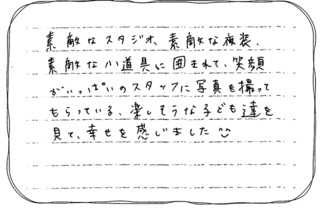 素敵なスタジオ、素敵な衣装、
素敵な小道具に囲まれて、笑顔
がいっぱいのスタッフに写真を撮って
もらっている、楽しそうな子ども達を
見て、幸せを感じました